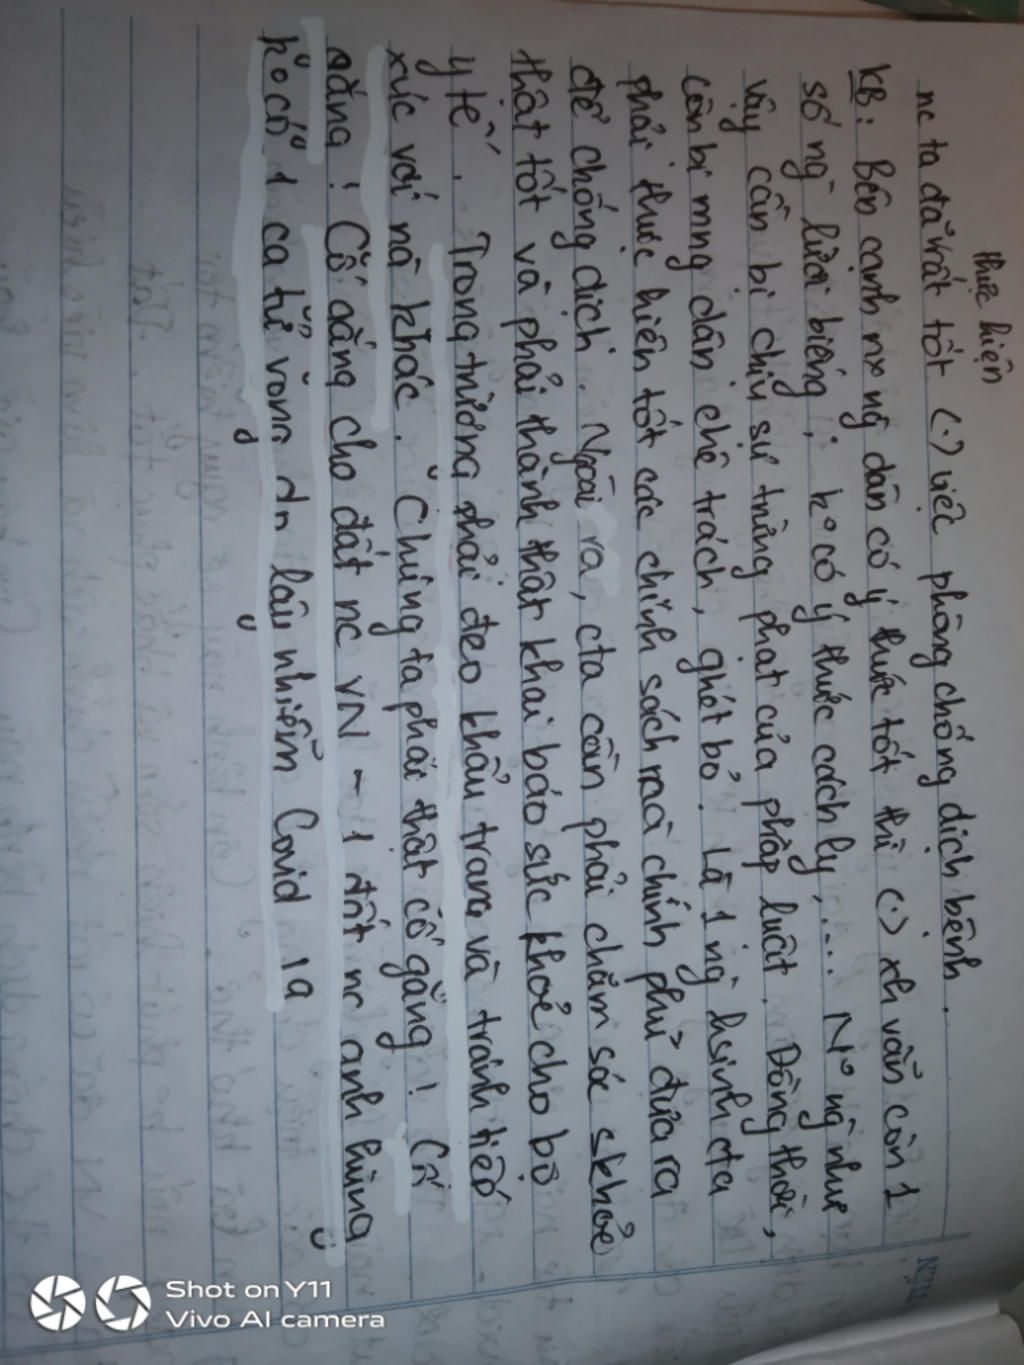 thực hiện
nc ta đã rất tốt (.) việc phòng chống dịch bệnh.
KB: Bên cạnh nx ng dân có ý thức tốt thì (.) xh vẫn còn 1
số ng lười biếng; ko có ý thức cách ly,... No ng như
vậy cần bị chịu sự trừng phạt của pháp luật. Đồng thời,
còn bị mng dân chê trách, ghét bỏ. Là 1 ng hsinh cta
phải thực hiện tốt các chính sách mà chính phủ đưa ra
để chống dịch. Ngoài ra, cta cần phải chăm sóc skhoẻ
thật tốt và phải thành thật khai báo sức khoẻ cho bộ
y tế. Trong trường phải đeo khẩu trang và tránh tiếp
xúc với nà khác. Chúng ta phải thật cố gắng! Cố
gắng! Cố gắng cho đất nc VN - 1 đất nc anh hùng
ko có 1 ca tử vong do lây nhiễm Covid 19
Shot on Y11
Vivo AI camera